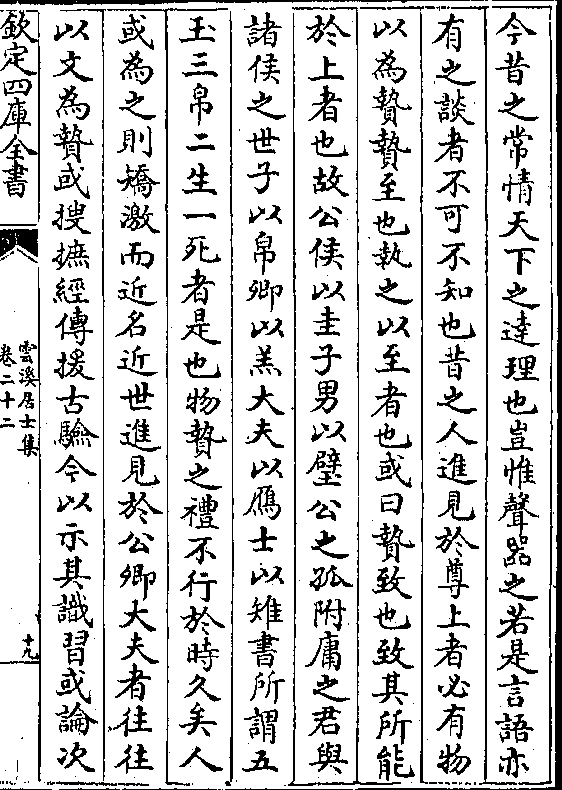 今昔之常情天下之達理也豈惟聲器之若是言語亦
有之談者不可不知也昔之人進見於尊上者必有物
以為贄贄至也執之以至者也或曰贄致也致其所能
於上者也故公侯以圭子男以璧公之孤附庸之君與
諸侯之世子以帛卿以羔大夫以鴈士以雉書所謂五
玉三帛二生一死者是也物贄之禮不行於時久矣人
或為之則矯激而近名近世進見於公卿大夫者往往
以文為贄或搜摭經傳援古驗今以示其識習或論次
欽定四庫全書
雲溪居士集
卷二十二
十九